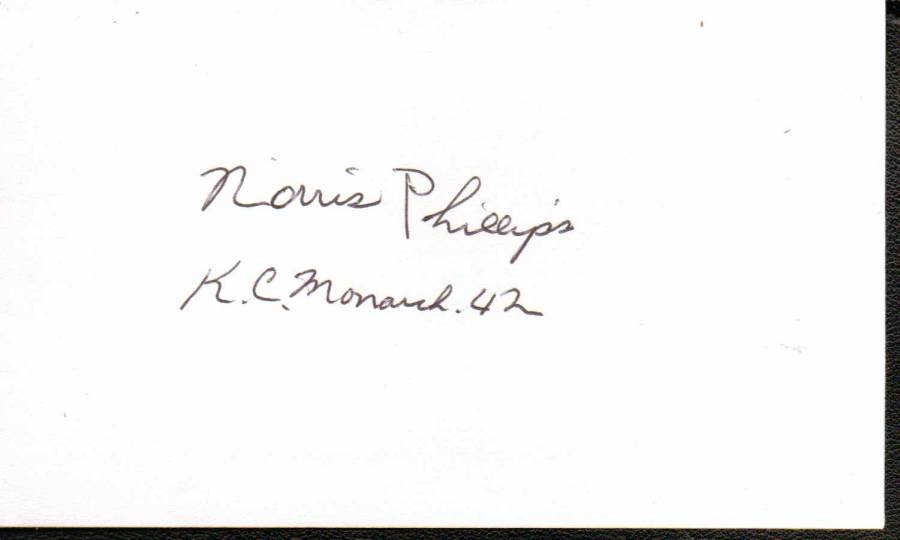 Norris Phillips
K.C. Monarch. 42